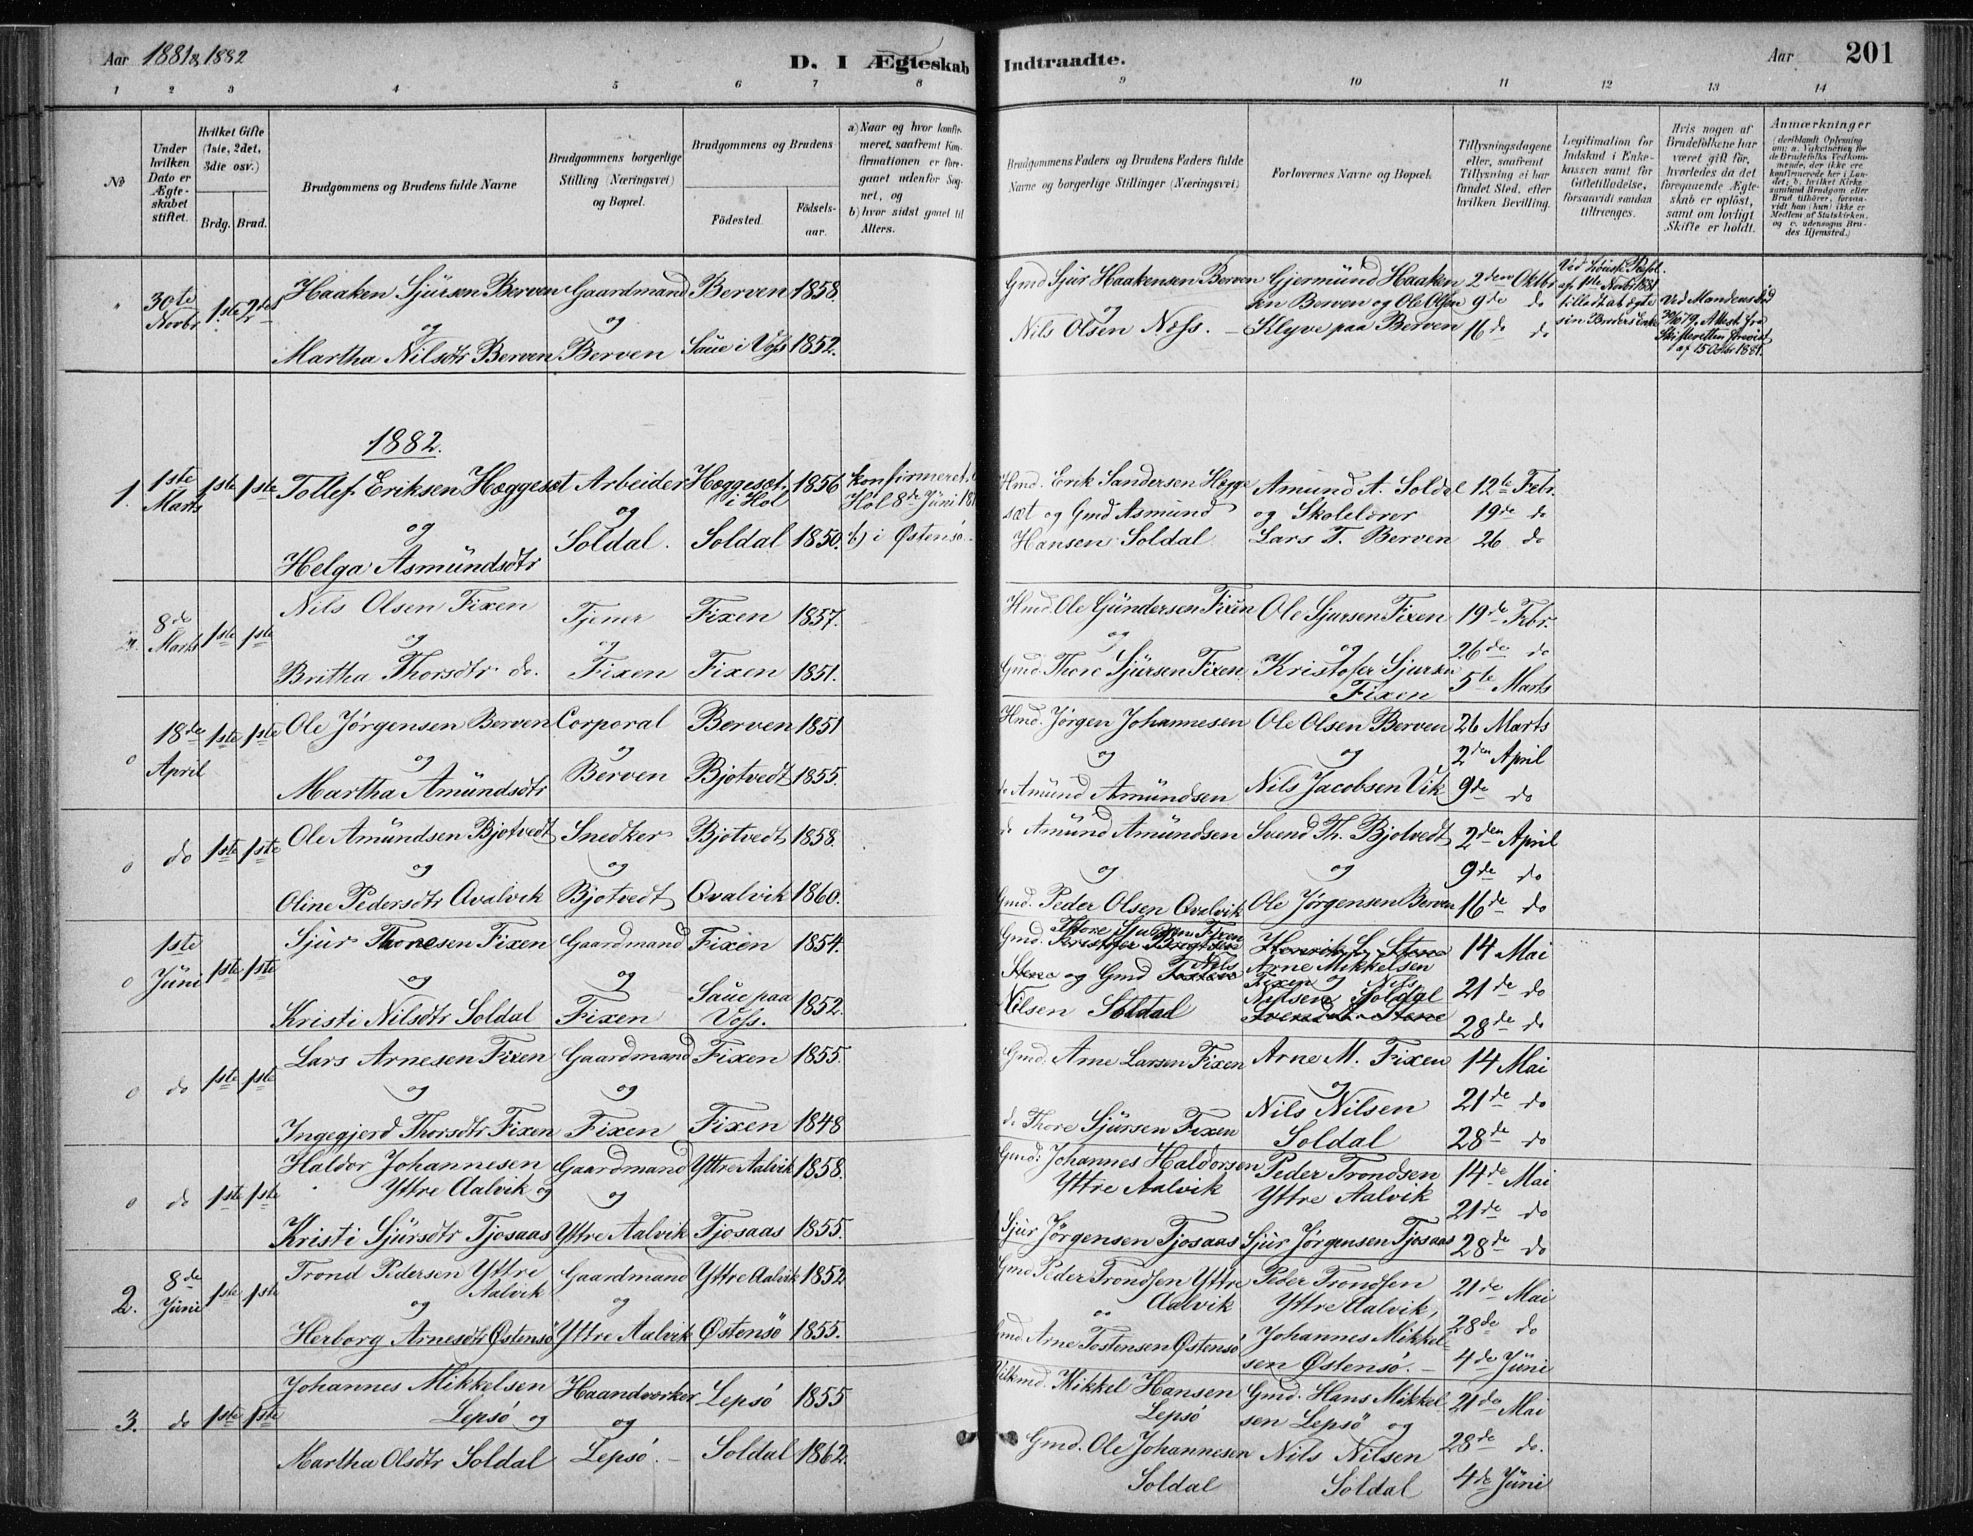 Aar 1881 & 1882
D. I Ægteskab Indtraadte.
Aar 201
1 2 3 4 5 6 7 8 9 10 11 12 13 14
No
Under hvilken Dato er Ægteskabet stiftet.
Hvilket Gifte (1ste, 2det, 3die osv.)
Brdg. Brud.
Brudgommens og Brudens fulde Navne
Brudgommens borgerlige Stilling (Næringsvei) og Bopæl.
Brudgommens og Brudens
Födested.
Födsels-aar.
a) Naar og hvor konfirmeret, saafremt Konfirmationen er foregaaet udenfor Sognet, og
b) hvor sidst gaaet til Alters.
Brudgommens Faders og Brudens Faders fulde Navne og borgerlige Stillinger (Næringsvei)
Forlovernes Navne og Bopæl.
Tillysningsdagene eller, saafremt Tillysning ei har fundet Sted, efter hvilken Bevilling.
Legitimation for Indskud i Enkekassen samt for Giftetilladelse, forsaavidt saadan tiltrænges.
Hvis nogen af Brudefolkene har været gift för, hvorledes da det foregaaende Ægteskab er oplöst, samt om lovligt Skifte er holdt.
Anmærkninger
(deriblandt Oplysning om: a. Vakcination for de Brudefolks Vedkommende, der ikke ere konfirmerede her i Landet; b. hvilket Kirkesamfund Brudgom eller Brud tilhörer, forsaavidt han (hun) ikke er Medlem af Statskirken, og c. udensogns Brudes Hjemsted.)
30te Novbr 1ste 2det Haaken Sjürsen Berven Gaardmand Berven 1858.
og og
Martha Nilsdtr Berven Berven Saue i Voss 1852.
Gmd Sjur Haakensen Berven Gjermünd Haaken 2den Oktbr
og sen Berven og Ole Olsen 9de do
Nils Olsen Næss. Klyve paa Berven 16de do
af 1ste Novbr 1881
tilladt at ægte
sin Broders Enke
Ved Mandens Död
79. Attest fra
af 15 Octbr 1881.
1882.
1. 1ste Marts 1ste 1ste Tollef Eriksen Hæggeset Arbeider Hæggeset i Hol 1856 Konfirmeret
og og Hol 8de Jüni
Helga Asmündsdtr Soldal. Soldal 1850. b) i Østensö
Hmd. Erik Sandersen Hægge Amund A. Soldal 12te Febr.
sæt og Gmd Asmund og Skolelærer 19de do
Hansen Soldal. Lars T. Berven 26 do
8de Marts 1ste 1ste Nils Olsen Fixen Tjener Fixen 1857.
og og
Britha Thorsdtr do. Fixen Fixen 1851.
Hmd. Ole Gündersen Fixen Ole Sjursen Fixen 19de Febr.
og og 26de do
Gmd. Thore Sjürsen Fixen Kristofer Sjursen 5te Marts
Fixen
18de April 1ste 1ste Ole Jørgensen Berven Corporal Berven 1851
og og
Martha Amündsdtr Berven Bjotvedt 1855.
Hmd. Jørgen Johannesen Ole Olsen Berven 26 Marts
og og 2den April
do Amünd Amündsen Nils Jacobsen Vik 9de do
do 1ste 1ste Ole Amündsen Bjotvedt Snedker Bjotvedt 1858.
og og
Oline Pedersdtr Qvalvik Bjotvedt Qvalvik 1860.
do Amünd Amündsen Svend Th. Bjotvedt 2den April
og og 9de do
Gmd. Peder Olsen Qvalvik Ole Jørgensen Berven 16de do
1ste Jüni 1ste 1ste Sjur Thoresen Fixen Gaardmand Fixen 1854.
og og
Kristi Nilsdtr Soldal Fixen Saue paa Voss. 1852.
Gmd. Thore Sjursen Fixen 14 Mai
og Gmd Nils Arne Mikkelsen
Fixen og Nils 21de do
Nilsen Soldal Nilsen Soldal
Svend Stene 28de do
do 1ste 1ste Lars Arnesen Fixen Gaardmand Fixen 1855.
og og
Ingegjerd Thorsdtr Fixen Fixen Fixen 1848
Gmd. Arne Larsen Fixen Arne M. Fixen 14 Mai
og 21de do
do Thore Sjürsen Fixen Nils Nilsen
Soldal 28de do
do 1ste 1ste Haldor Johannesen Gaardmand Yttre Aalvik 1858.
Yttre Aalvik og og
Kristi Sjürsdtr Tjosaas Yttre Aalvik Tjosaas 1855.
Gmd. Johannes Haldorsen Peder Trondsen 14de Mai
Yttre Aalvik Yttre Aalvik 21de do
Sjür Jørgensen Tjosaas Sjür Jørgensen Tjosaas 28de do
2. 8de Jüni 1ste 1ste Trond Pedersen Yttre Gaardmand Yttre Aalvik 1852
Aalvik
og og
Herborg Arnesdtr Østensö Yttre Aalvik Østensö 1855.
Gmd Peder Trondsen Yttre Peder Trondsen 21de Mai
og Aalvik Yttre Aalvik, 28de do
Gmd Arne Tostensen Østensö Johannes Mikkel-
sen Østensö. 4de Jüni
3. do 1ste 1ste Johannes Mikkelsen Haandværker Lepsö 1855
Lepsö og og
Martha Olsdtr Soldal Lepsö. Soldal 1862.
Mikkel Hansen Gmd. Hans Mikkel- 21de Mai
Lepsö sen Lepsö og
Gmd. Ole Johannesen Nils Nilsen 28de do.
Soldal Soldal 4de Jüni